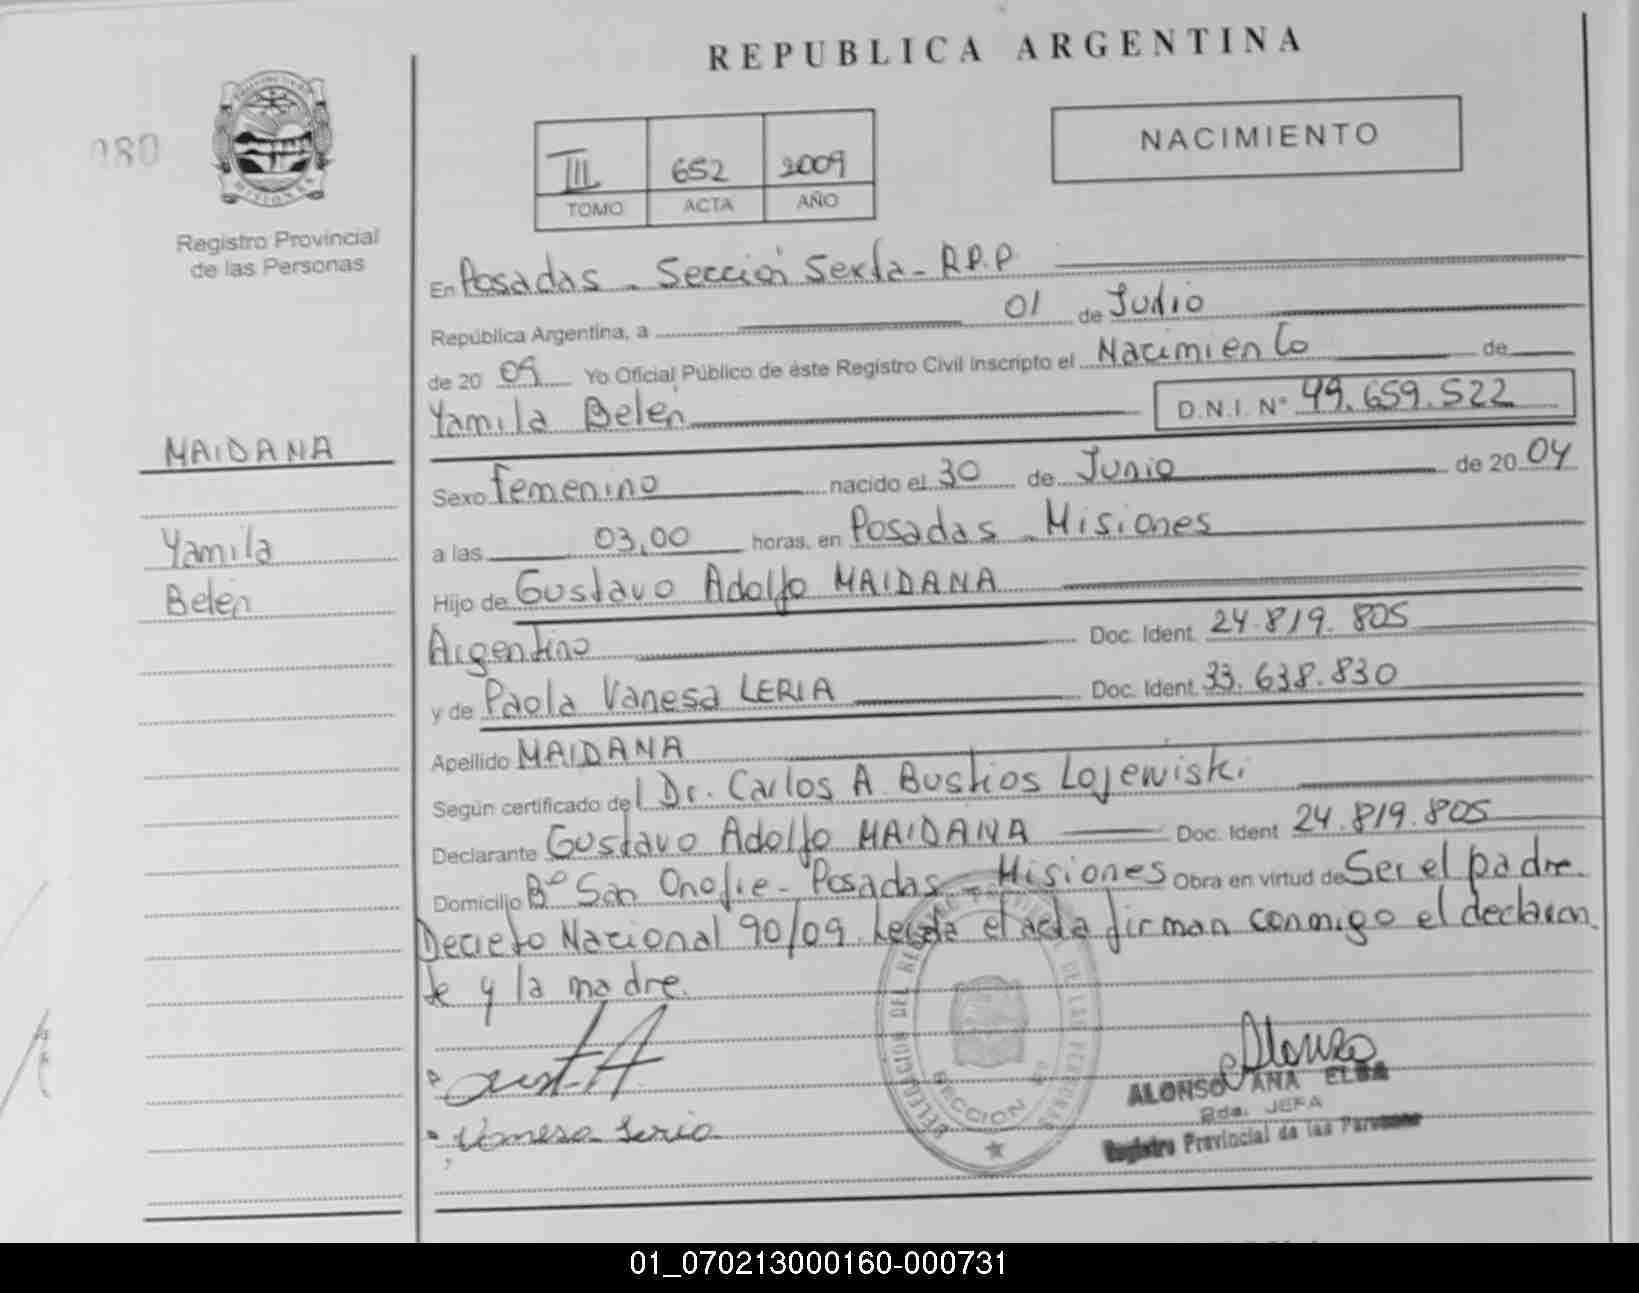 REPUBLICA ARGENTINA
080
MISIONES
Registro Provincial
de las Personas
III 652 2009
TOMO ACTA AÑO
NACIMIENTO
En Posadas - Sección Sexta - R.P.P
República Argentina, a 01 de Julio
de 20 09 Yo Oficial Público de éste Registro Civil Inscripto el Nacimiento de
Yamila Belén D.N.I. N° 49.659.522
MAIDANA
Yamila
Belén
Sexo Femenino nacido el 30 de Junio de 20 04
a las 03,00 horas, en Posadas - Misiones
Hijo de Gustavo Adolfo MAIDANA
Argentino Doc. Ident. 24.819.805
y de Paola Vanesa LERIA Doc. Ident. 33.638.830
Apellido MAIDANA
Según certificado del Dr. Carlos A. Bustios Lojewiski
Declarante Gustavo Adolfo MAIDANA Doc. Ident 24.819.805
Domicilio B° San Onofre - Posadas - Misiones Obra en virtud de Ser el padre.
Decreto Nacional 90/09. Leída el acta firman conmigo el declaran
te y la madre.
Vanesa Leria
DELEGACION DEL REGISTRO PROVINCIAL DE LAS PERSONAS
SECCION 6°
Alonso
ALONSO ANA ELBA
2da. JEFA
Registro Provincial de las Personas
01_070213000160-000731